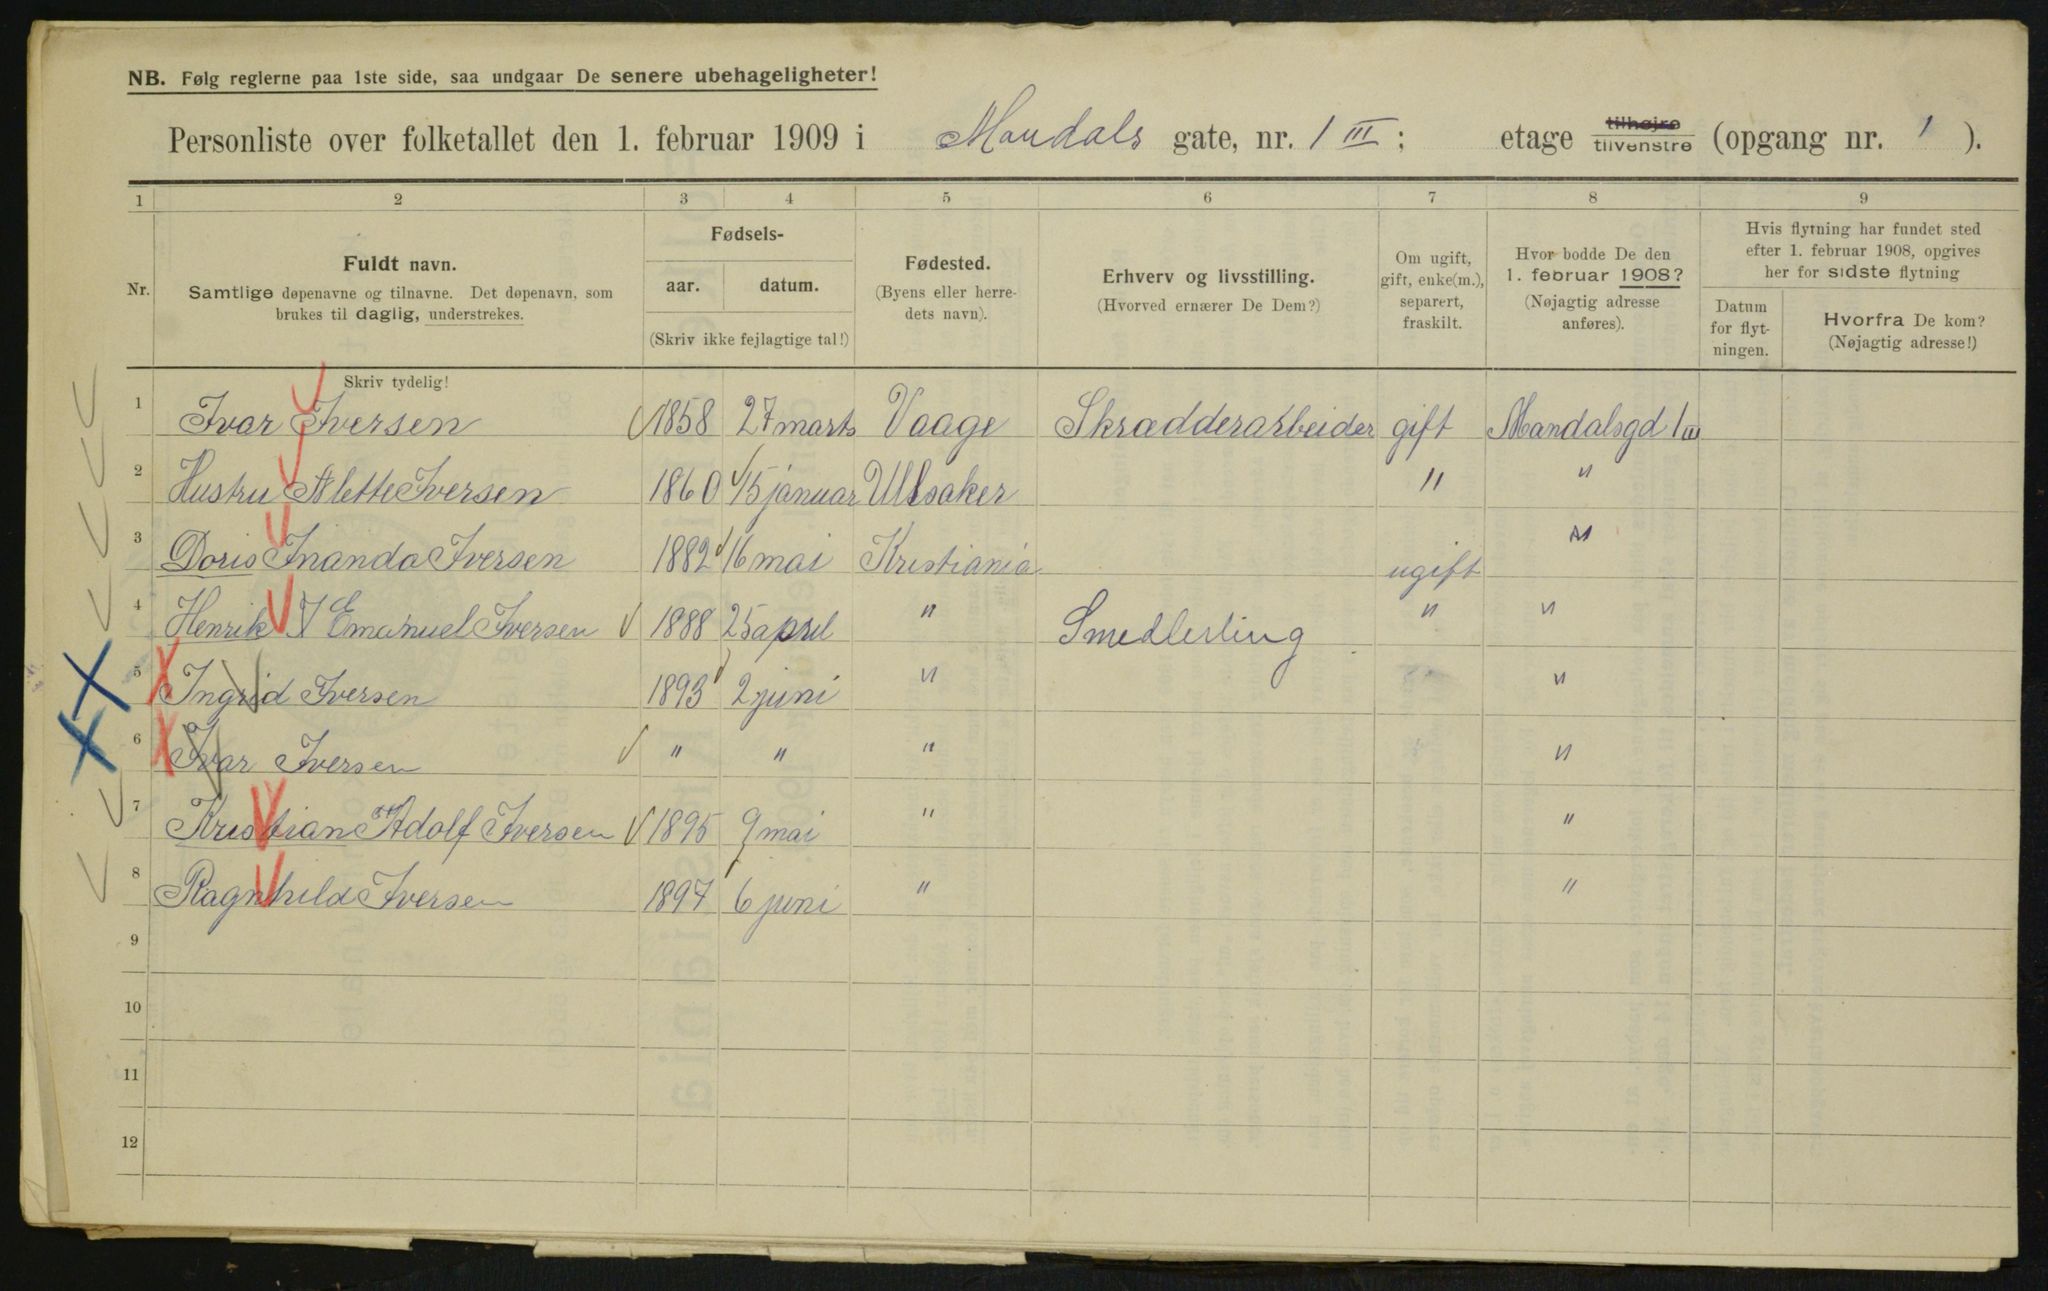 NB. Følg reglerne paa 1ste side, saa undgaar De senere ubehageligheter!
Personliste over folketallet den 1. februar 1909 i Mandals gate, nr. 1 III; etage tilhøjre tilvenstre (opgang nr. 1).
1 2 3 4 5 6 7 8 9
Nr.
Fuldt navn.
Samtlige døpenavne og tilnavne. Det døpenavn, som
brukes til daglig, understrekes.
Fødsels-
aar. datum.
(Skriv ikke fejlagtige tal!)
Fødested.
(Byens eller herre-
dets navn).
Erhverv og livsstilling.
(Hvorved ernærer De Dem?)
Om ugift,
gift, enke(m.),
separert,
fraskilt.
Hvor bodde De den
1. februar 1908?
(Nøjagtig adresse
anføres).
Hvis flytning har fundet sted
efter 1. februar 1908, opgives
her for sidste flytning
Datum
for flyt-
ningen.
Hvorfra De kom?
(Nøjagtig adresse!)
Skriv tydelig!
1 Ivar Iversen 1858 27 marts Vaage Skrædderarbeider gift Mandalsgd 1 III
2 Hustru Alette Iversen 1860 15 januar Ullsaker " "
3 Doris Inanda Iversen 1882 16 mai Kristiania ugift "
4 Henrik I Emanuel Iversen 1888 25 april " Smedlerling " "
5 Ingrid Iversen 1893 2 juni " "
6 Ivar Iversen " " " "
7 Kristian Adolf Iversen 1895 9 mai " "
8 Ragnhild Iversen 1897 6 juni " "
9
10
11
12